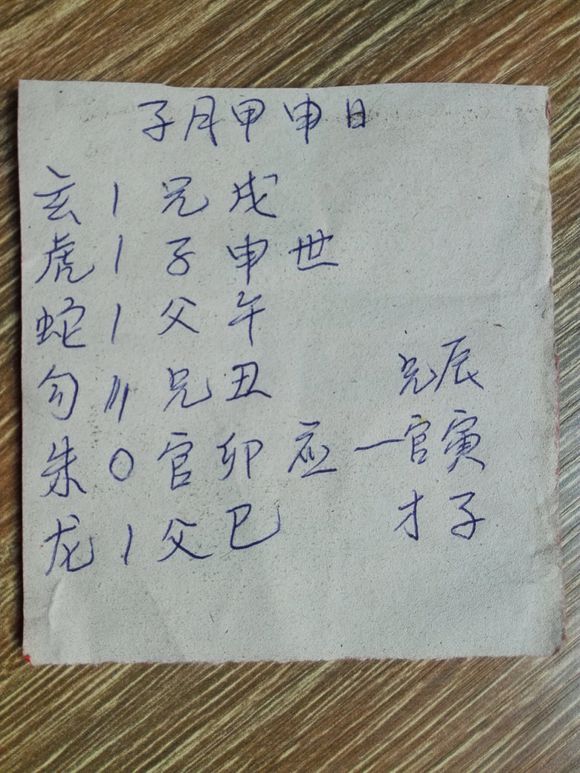 子月甲申日
玄 〡 兄 戌
虎 〡 子 申 世
蛇 〡 父 午
勾 〢 兄 丑 兄辰
朱 〇 官 卯 应 一官寅
龙 〡 父 巳 才子